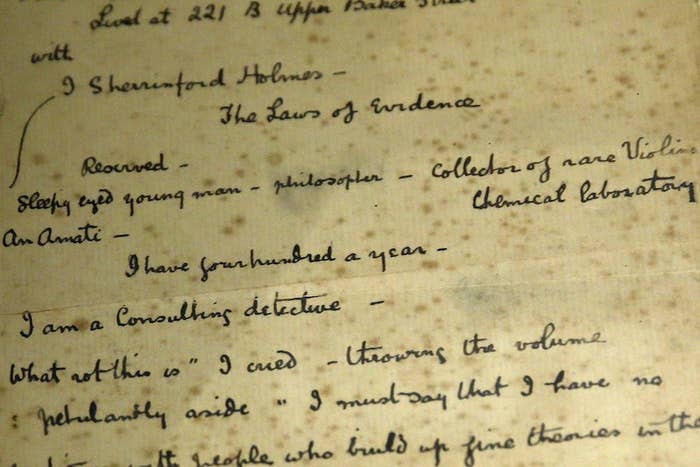 Lived at 221 B Upper Baker Street
with
I Sherrinford Holmes -
The Laws of Evidence
Reserved -
Sleepy eyed young man - philosopher - Collector of rare Violins
An Amati -
Chemical laboratory
I have four hundred a year -
I am a Consulting detective -
What rot this is" I cried - throwing the volume
: petulantly aside " I must say that I have no
with people who build up fine theories in the